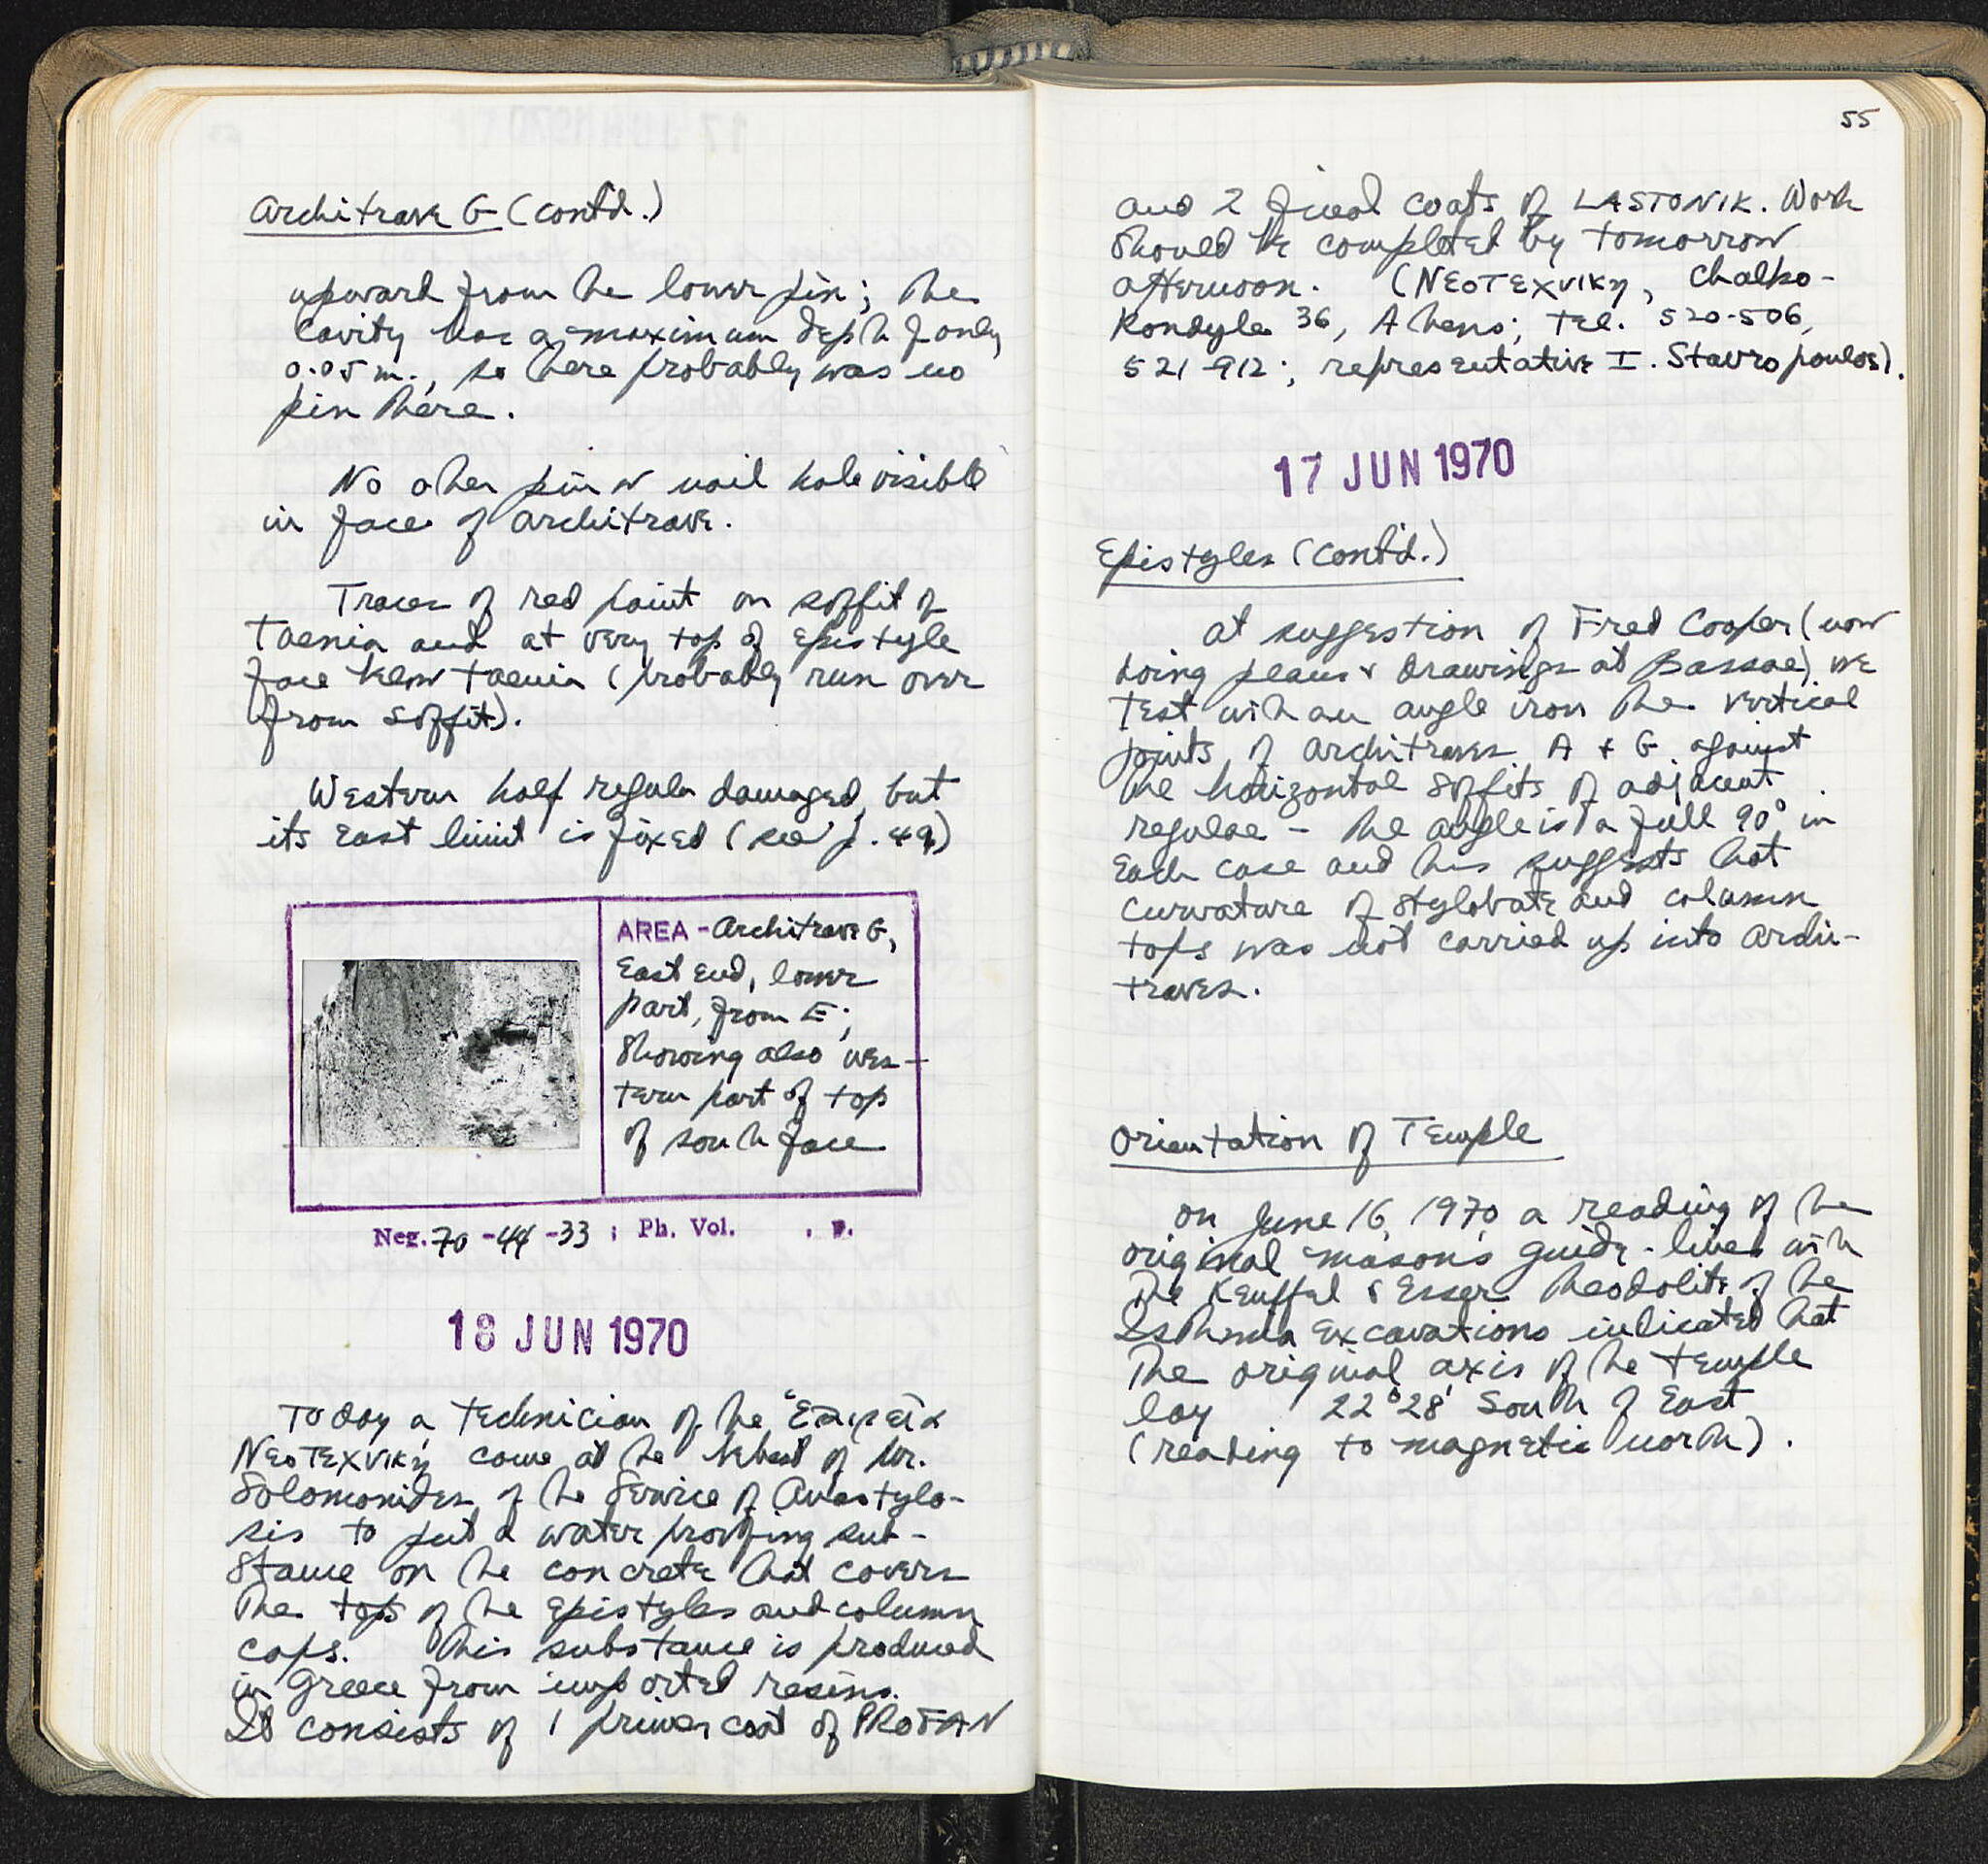 Architrave G (contd.)
upward from the lower pin; the
cavity has a maximum depth of only
0.05 m., so there probably was no
pin there.
No other pin or nail hole visible
in face of architrave.
Traces of red paint on soffit of
Taenia and at very top of epistyle
face below taenia (probably run over
from soffit).
Western half regula damaged, but
its east limit is fixed (see p. 49)
AREA - Architrave G,
East end, lower
part, from E;
showing also wes-
tern part of top
of south face
Neg. 70 - 44 - 33 ; Ph. Vol. , p.
18 JUN 1970
Today a technician of the Ἑταιρεία
Νεοτεχνική came at the behest of Mr.
Solomonides of the Service of Anastylo-
sis to put a water proofing sub-
stance on the concrete that covers
the tops of the epistyles and column
caps. This substance is produced
in Greece from imported resins.
It consists of 1 primer coat of PROFAN
55
and 2 final coats of LASTONIK. Work
should be completed by tomorrow
afternoon. (Νεοτεχνική, Chalko-
kondyle 36, Athens; Tel. 520-506,
521-912; representative I. Stavropoulos).
17 JUN 1970
Epistyles (contd.)
At suggestion of Fred Cooper (now
doing plans & drawings at Bassae) we
test with an angle iron the vertical
joints of architraves A + G against
the horizontal soffits of adjacent
regulae - the angle is a full 90° in
each case and this suggests that
curvature of stylobate and column
tops was not carried up into archi-
traves.
Orientation of Temple
On June 16, 1970 a reading of the
original mason's guide-lines with
the Keuffel & Esser theodolite of the
Isthmia Excavations indicated that
the original axis of the temple
lay 22°28' South of East
(reading to magnetic north).